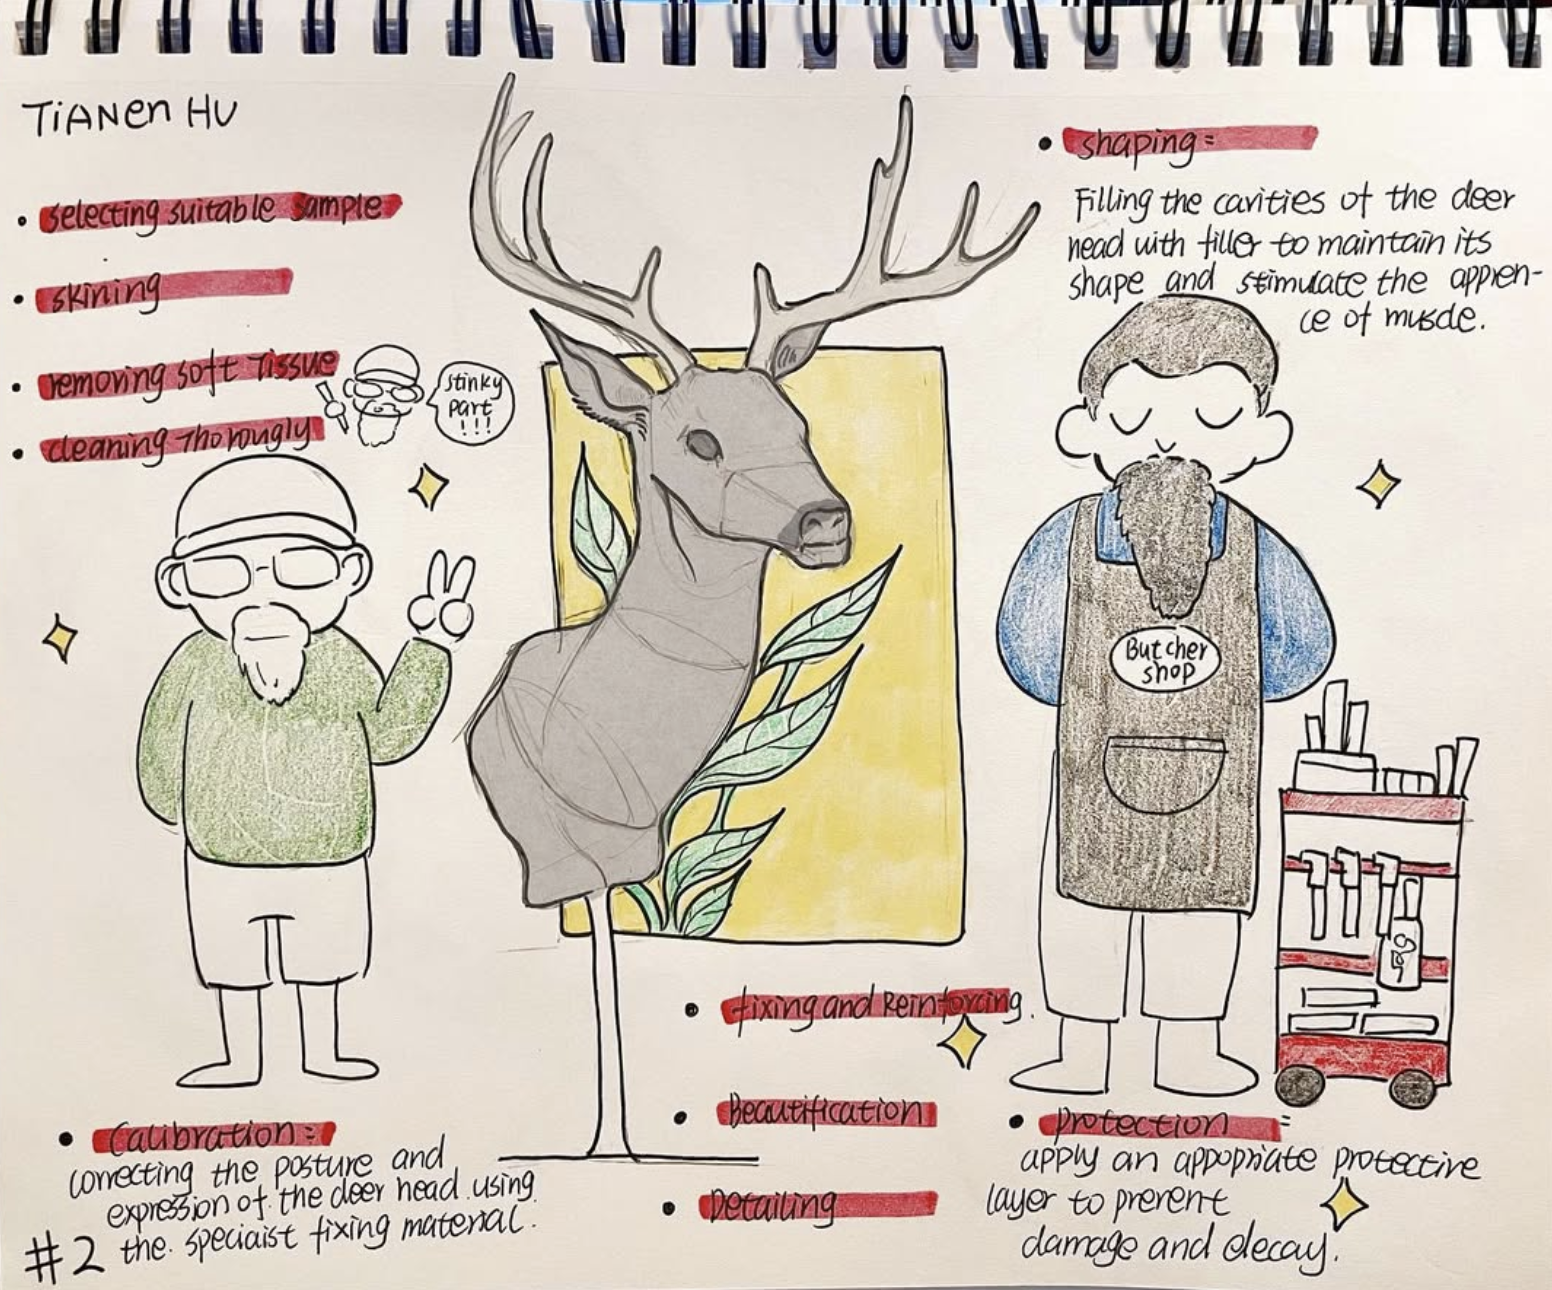 TiANen HU
• selecting suitable sample
• skining
• removing soft Tissue
• cleaning Thorougly
stinky
part
!!!
• shaping:
Filling the cavities of the deer
head with filler to maintain its
shape and stimulate the appren-
ce of muscle.
Butcher
shop
• fixing and Reinforcing.
• Beautification
• Detailing
• Calibration:
correcting the posture and
expression of the deer head using
the speciaist fixing material.
#2
• protection:
apply an appopriate protective
layer to prevent
damage and decay.